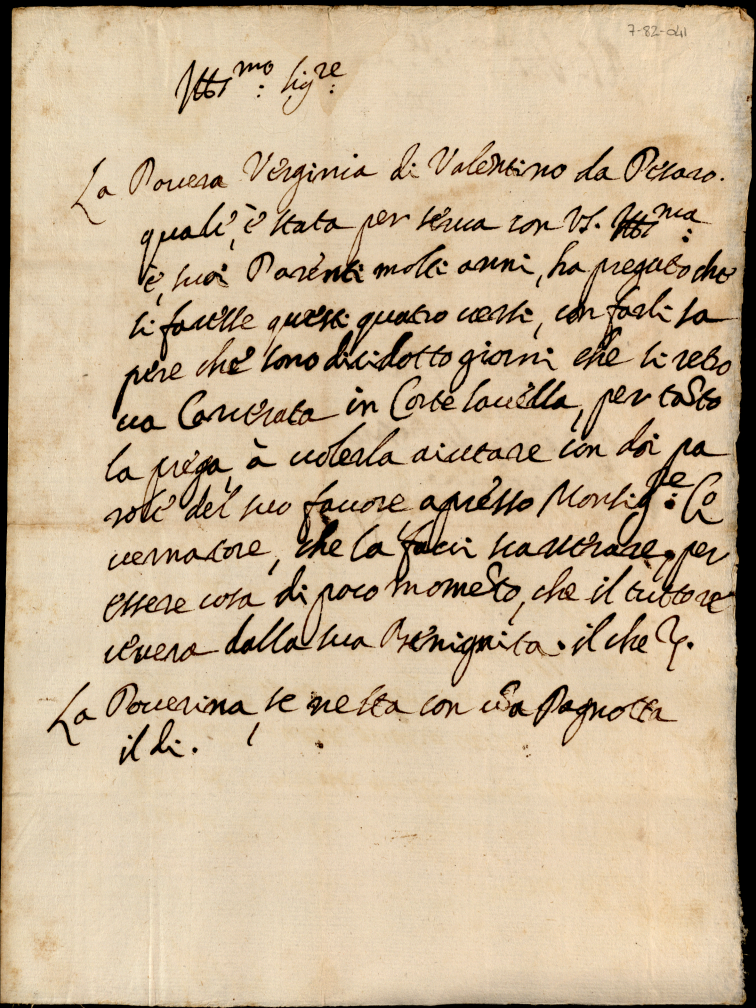 7-82-041
Ill:mo Sig:re
La Povera Verginia di Valentino da Pesaro.
quale, è stata per serva con VS. Ill:ma
è, suoi Parenti molti anni, ha pregato che
si facesse questi quatro versi, con farli sa
pere che sono dicidotto giorni che si retro
va Carcerata in Corte Savella, per tanto
la prega, à volerla aiutare con doi pa
role del suo favore apresso Monsig:re Go
vernatore, che la facci scarcerare, per
essere cosa di poco momento, che il tuttore
cevera dalla sua Benignita. il che &.
La Poverina, se ne sta con una Pagnotta
il di.